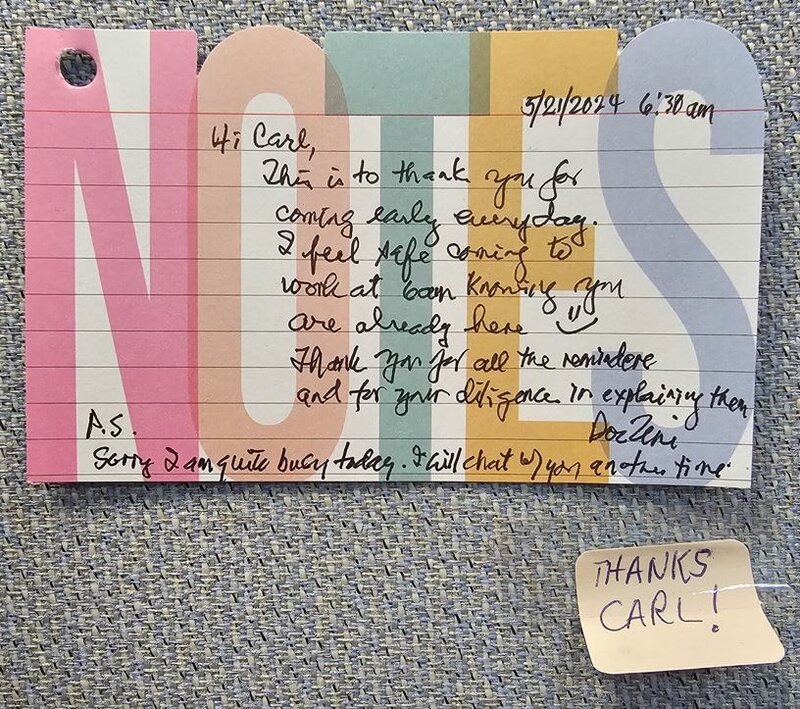 NOTES
5/21/2024 6:30am
Hi Carl,
This is to thank you for
coming early everyday.
I feel safe coming to
work at 6am knowing you
are already here
Thank you for all the reminders
and for your diligence in explaining them
Doc Zeni
P.S.
Sorry I am quite busy today. I will chat w/ you another time.
THANKS
CARL!